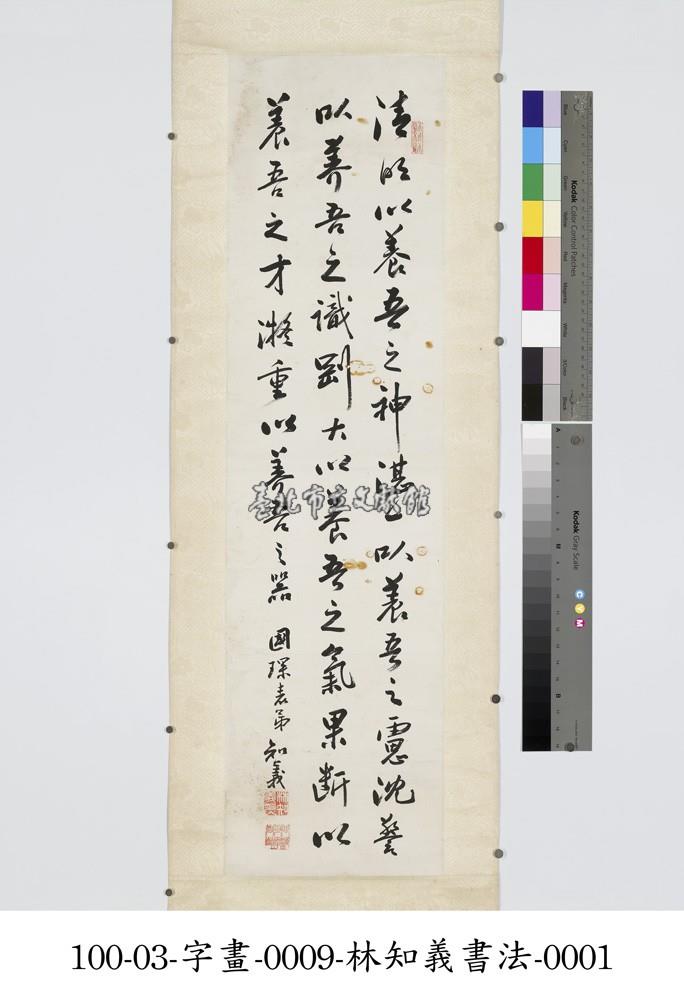 清明以養吾之神湛一以養吾之慮沈警
以養吾之識剛大以養吾之氣果斷以
養吾之才凝重以養吾之器 國琛表弟 知義
臺北市立文獻館
Kodak Color Control Patches
Blue
Cyan
Green
Yellow
Red
Magenta
White
3/Color
Black
Kodak Gray Scale
A
M
B
C Y M
100-03-字畫-0009-林知義書法-0001